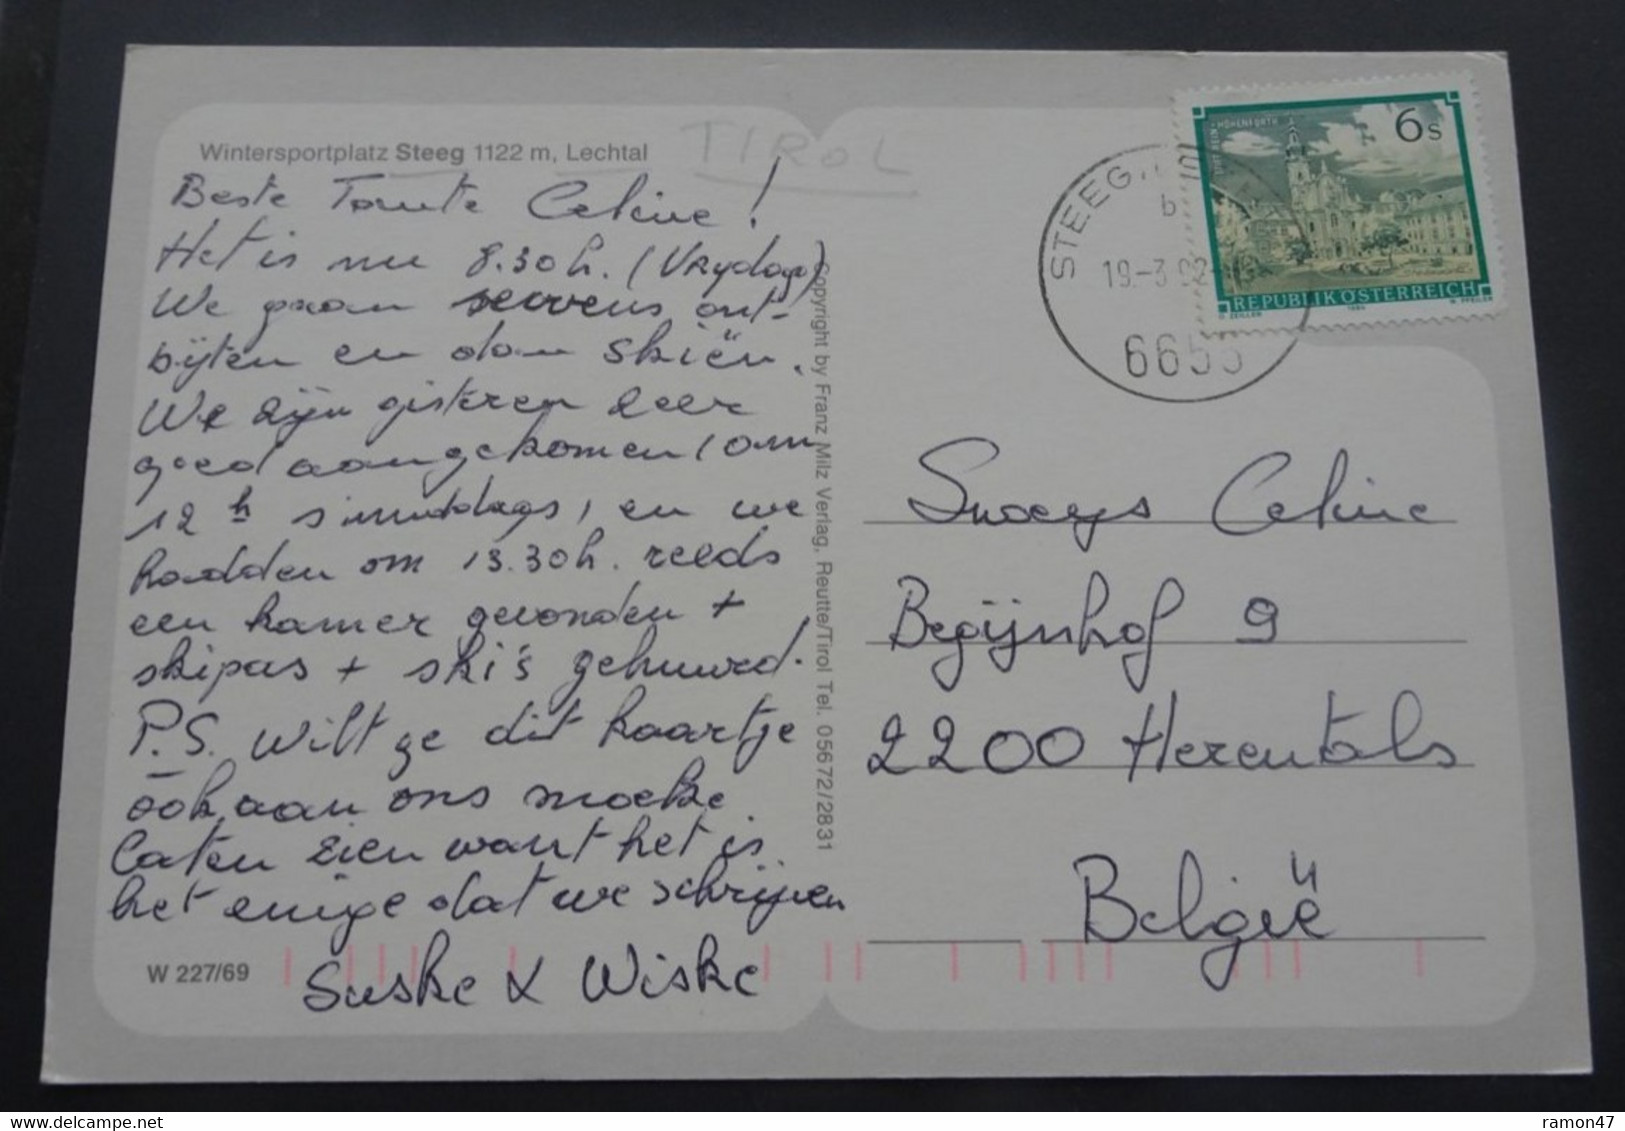 Wintersportplatz Steeg 1122 m, Lechtal
TIROL
Beste Tante Celine!
Het is nu 8.30 h. (Vrydags)
We gaan seevens ont-
bijten en dan skiën.
We zijn gisteren zeer
goed aangekomen (om
12 h 's middags) en we
hadden om 13.30 h. reeds
een kamer gevonden +
skipas + ski's gehuurd.
P.S. Wilt ge dit kaartje
ook aan ons moeke
laten zien want het is
het enige dat we schrijven
Suske & Wiske
W 227/69
Copyright by Franz Milz Verlag, Reutte/Tirol Tel. 05672/2831
STEEG,
b
19.-3.92-
6655
STIFT REIN - HOHENFURTH
6s
REPUBLIK ÖSTERREICH
O. ZEILLER
W. PFEILER
Swaeys Celine
Begijnhof 9
2200 Herentals
België
ramon47